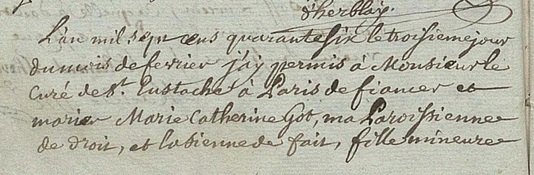 d'herblay.
L'an mil sept cens quarante six le troisieme jour
du mois de fevrier j'ay permis à Monsieur le
Curé de St. Eustache à Paris de fiancer et
marier Marie Catherine Got, ma Paroissienne
de droit, et la sienne de fait, fille mineure